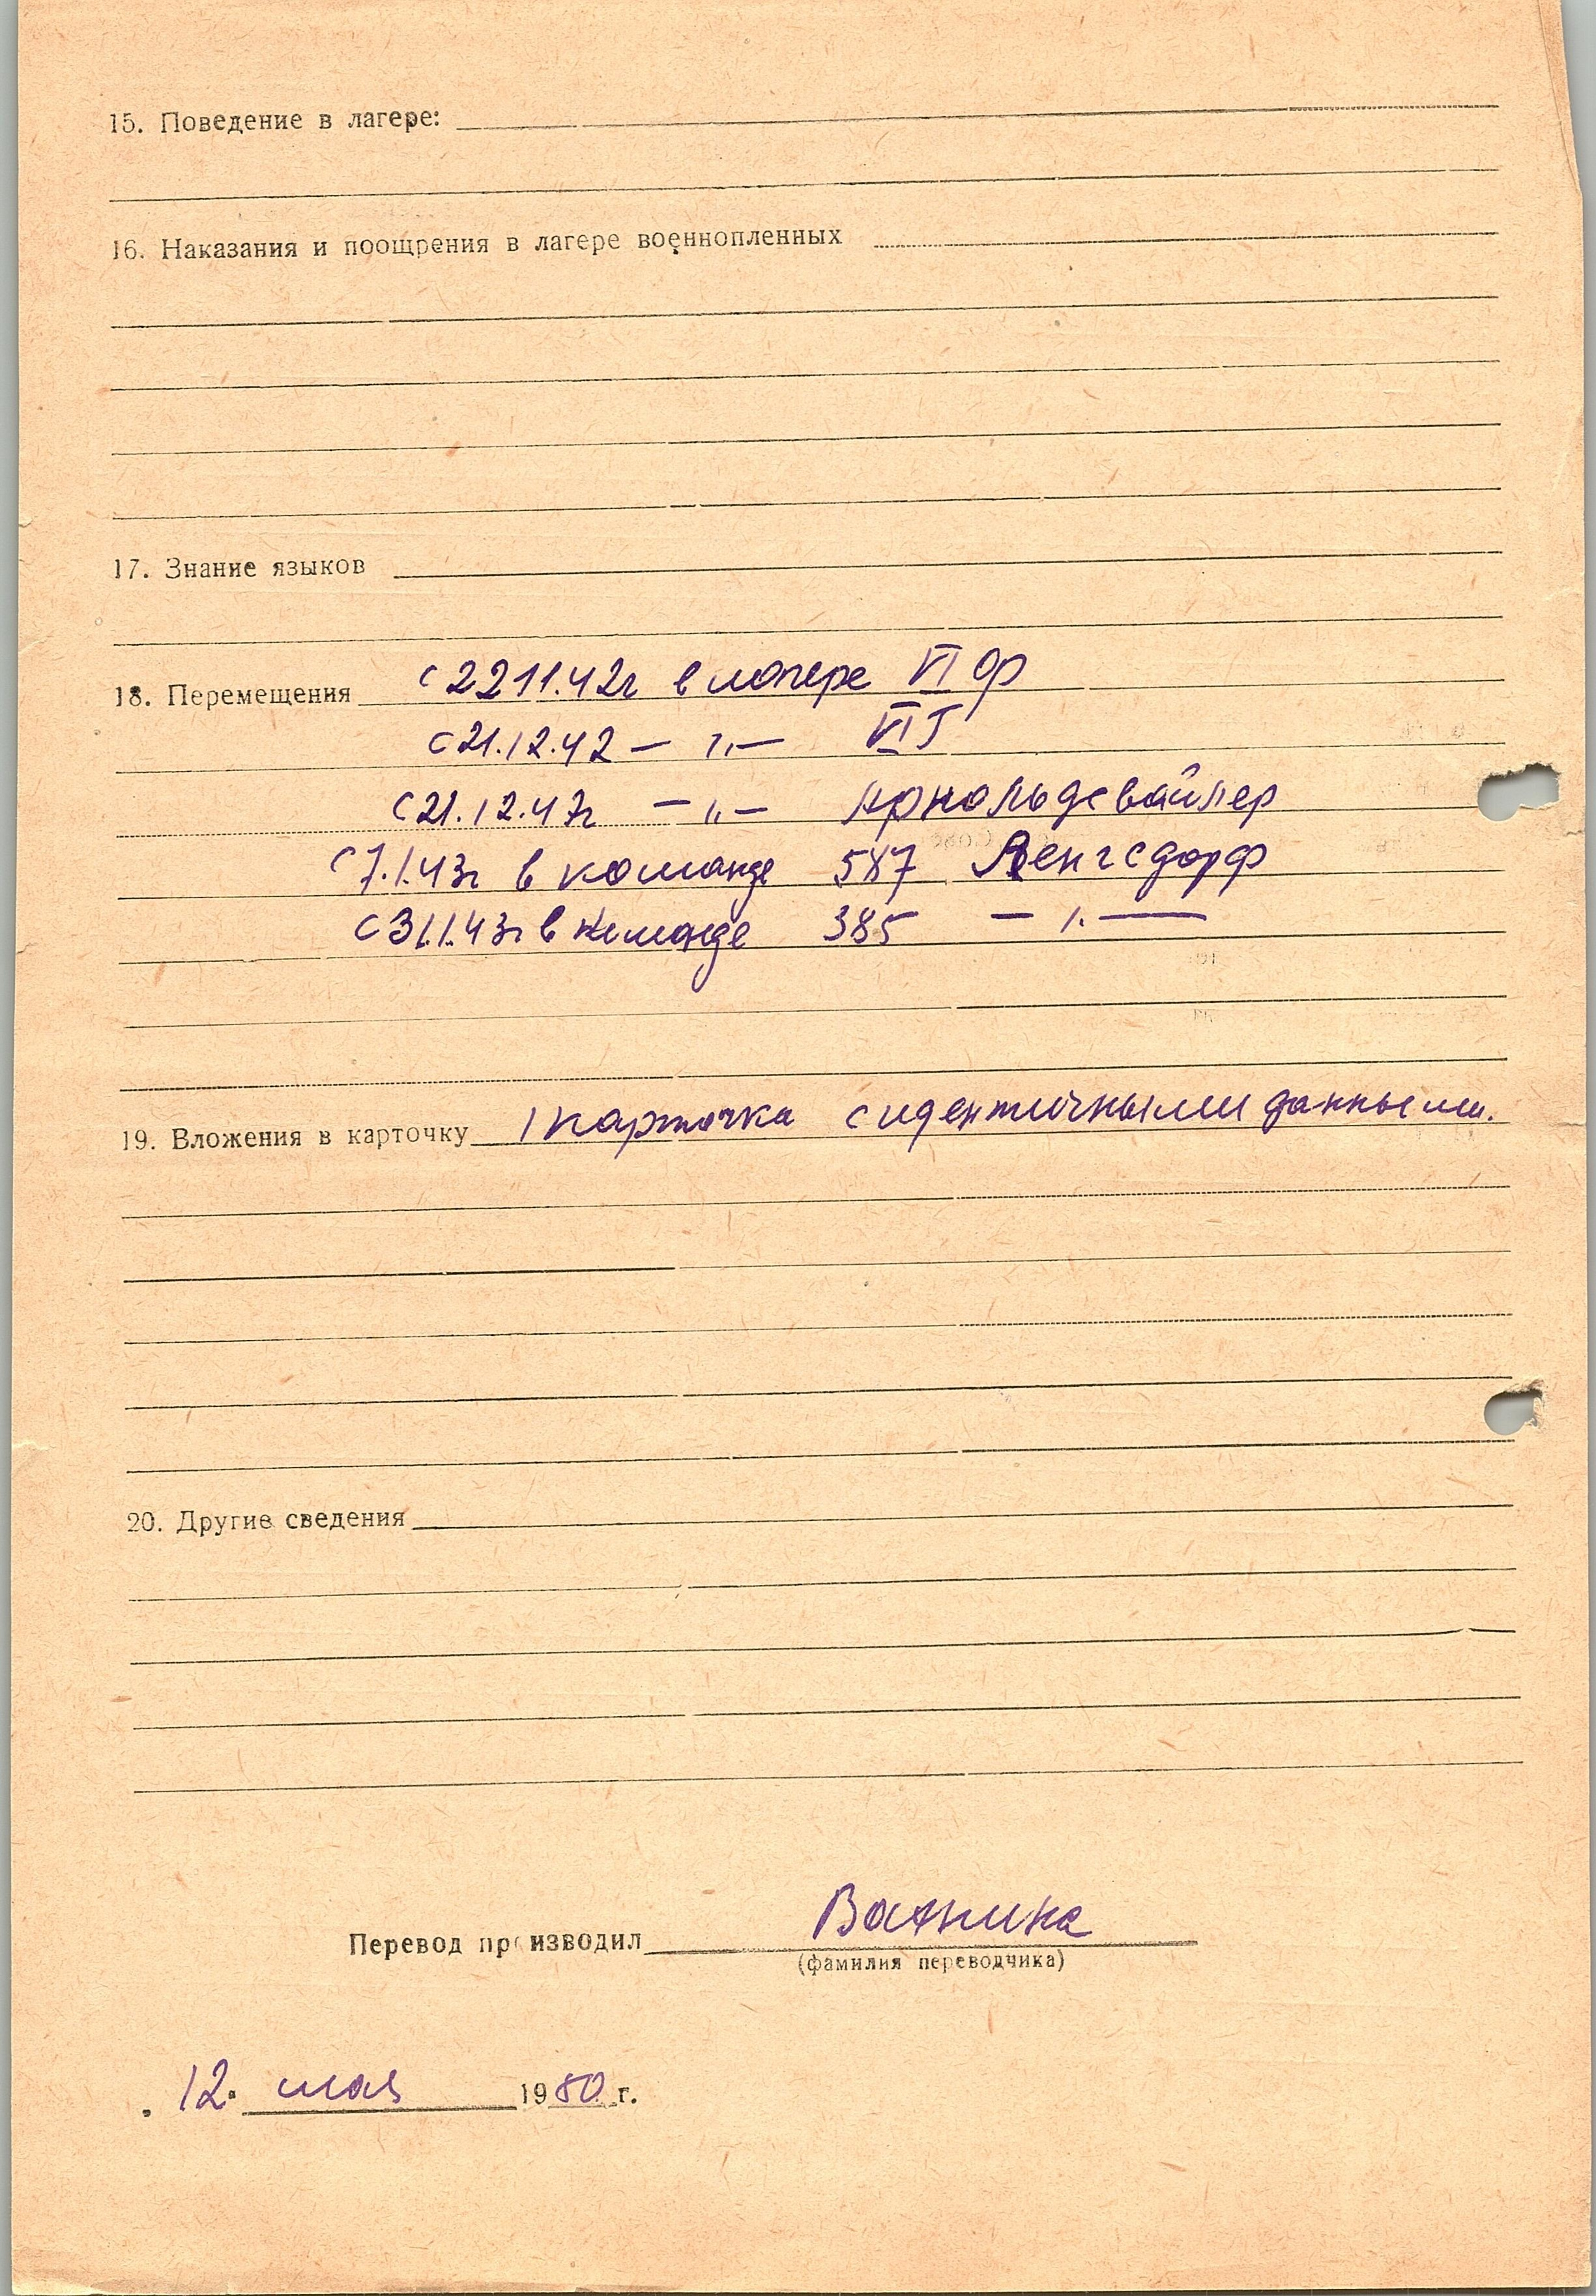 15. Поведение в лагере:
16. Наказания и поощрения в лагере военнопленных
17. Знание языков
18. Перемещения с 22 11.42г в лагере VI Ф
с 21.12.42 — "— VI J
с 21.12.42г — "— Арнольдсвайлер
с 7.1.43г в команде 587 Венгсдорф
с 31.1.43г в команде 385 — " —
19. Вложения в карточку 1 карточка с идентичными данными.
20. Другие сведения
Перевод производил
(фамилия переводчика)
12. мая 1950 г.